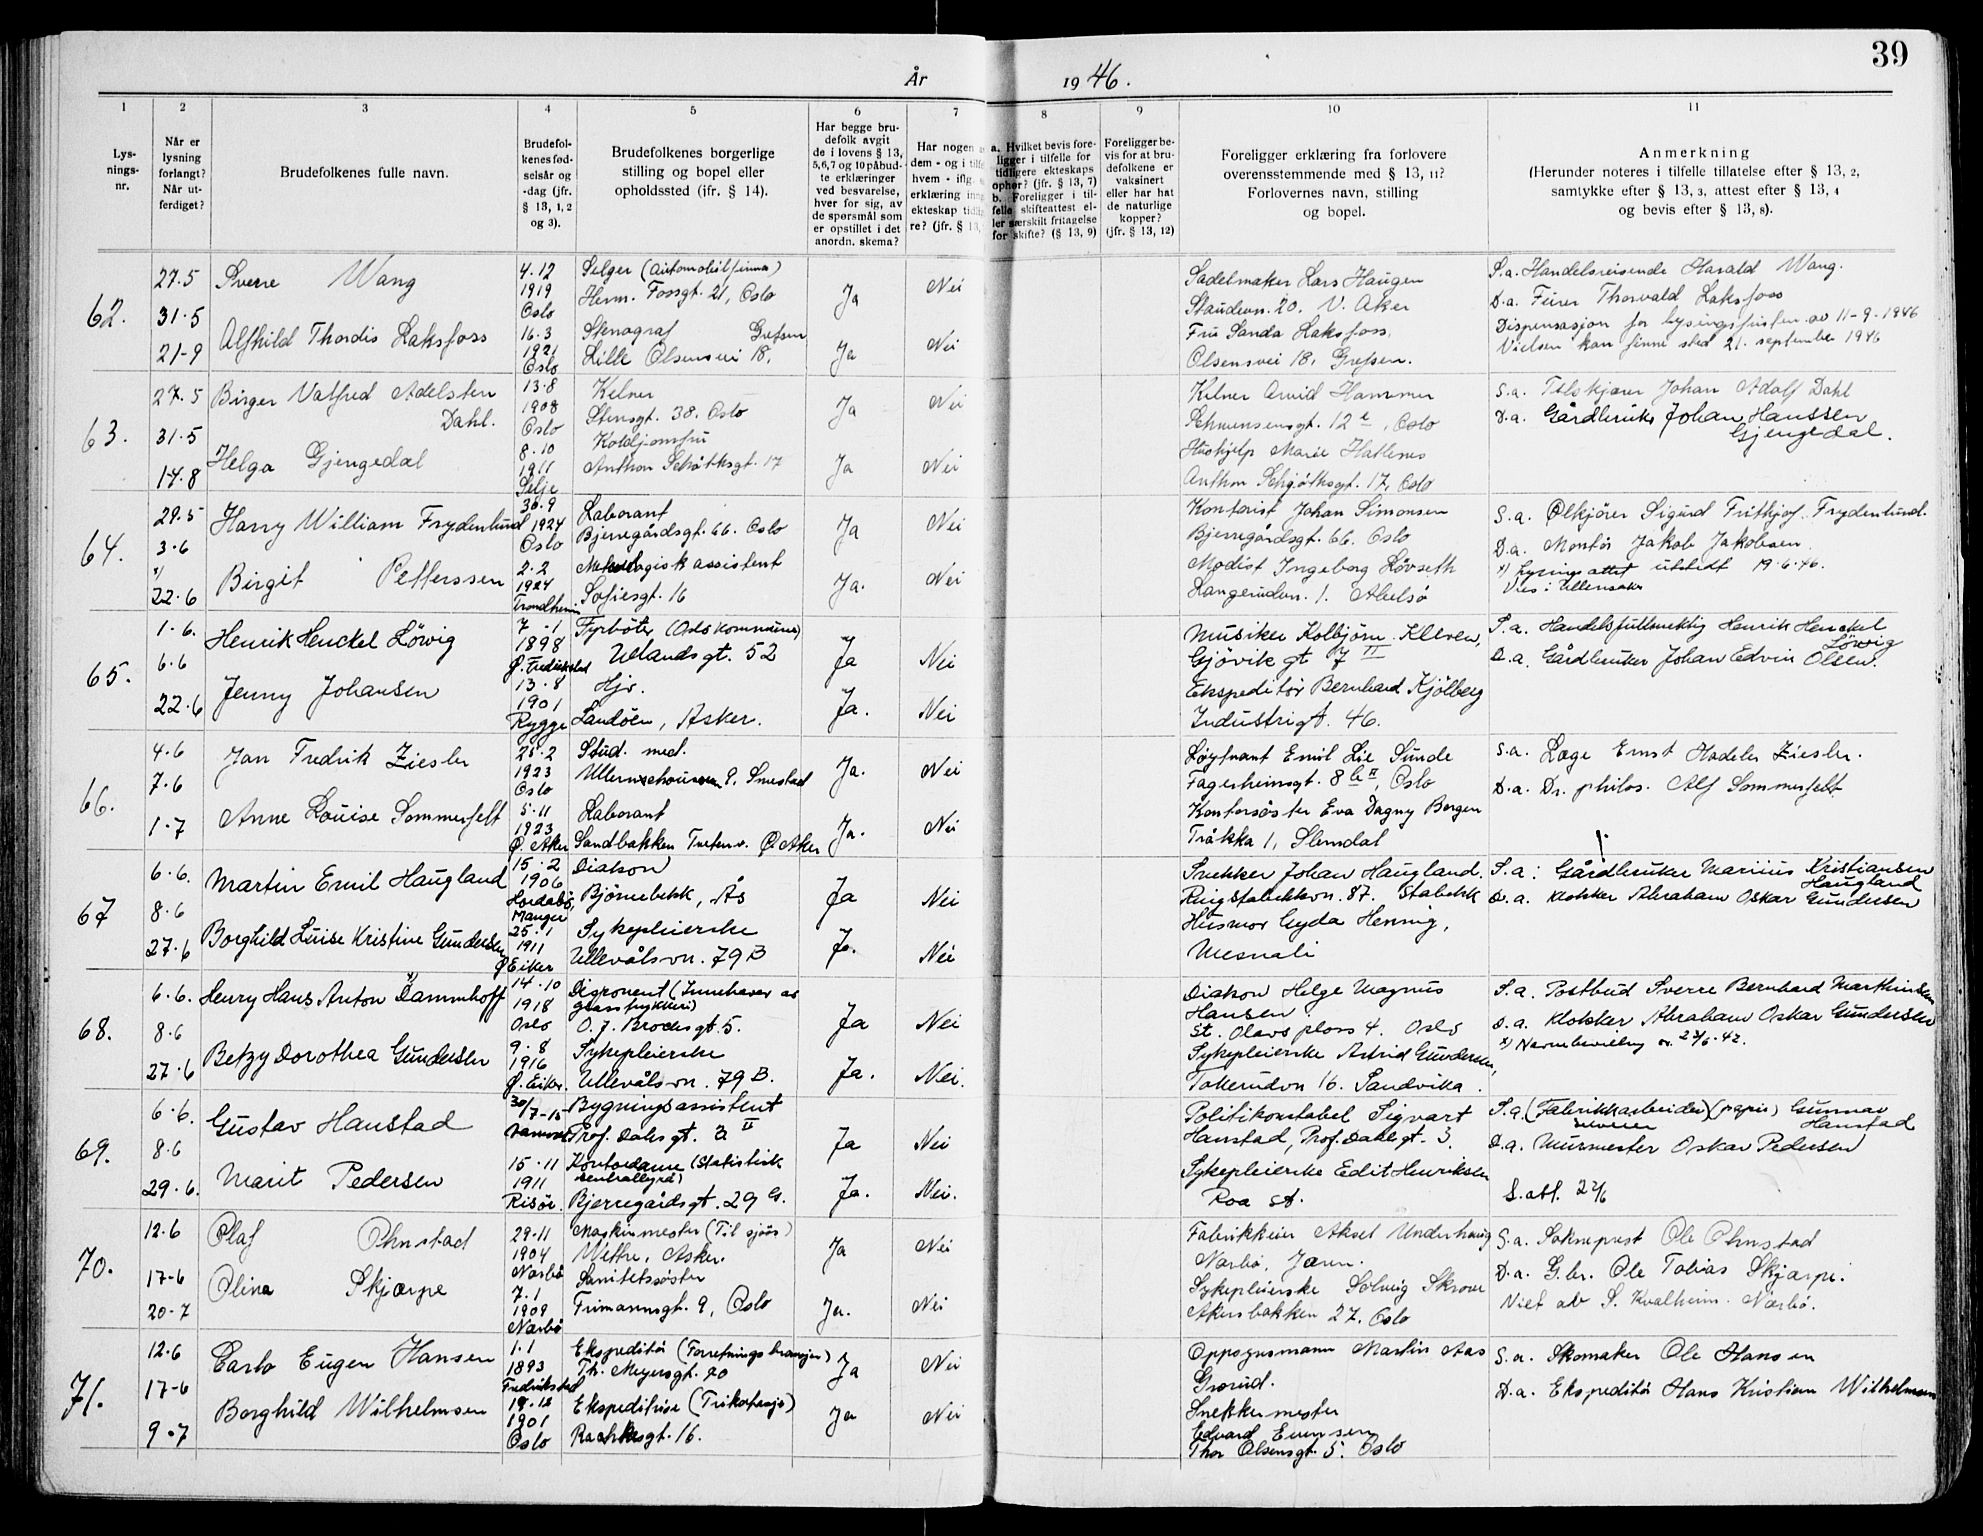 39
År 1946.
1
2
3
4
5
6
7
8
9
10
11
Lys-
nings-
nr.
Når er
lysning
forlangt?
Når ut-
ferdiget?
Brudefolkenes fulle navn.
Brudefol-
kenes fød-
selsår og
-dag (jfr.
§ 13, 1, 2
og 3).
Brudefolkenes borgerlige
stilling og bopel eller
opholdssted (ifr. § 14).
Har begge bru-
defolk avgit
de i lovens § 13,
5,6,7 og 10 påbud-
te erklæringer
ved besvarelse,
hver for sig, av
de spørsmål som
er opstillet i det
anordn. skema?
Har nogen
dem - og i tilfe
hvem - iflg.
erklæring inn
ekteskap tidlig
re? (jfr. § 13,
a. Hvilket bevis fore-
ligger i tilfelle for
tidligere ekteskaps
ophør? (jfr. § 13, 7)
b. Foreligger i til-
felle skifteattest el-
ler særskilt fritagelse
for skifte? (§ 13, 9)
Foreligger be-
vis for at bru-
defolkene er
vaksinert
eller har hat
de naturlige
kopper?
(jfr. § 13, 12)
Foreligger erklæring fra forlovere
overensstemmende med § 13, 11?
Forlovernes navn, stilling
og bopel.
Anmerkning
(Herunder noteres i tilfelle tillatelse efter § 13, 2,
samtykke efter § 13, 3, attest efter § 13, 4
og bevis efter § 13, 8).
62.
27.5
31.5
21-9
Sverre Wang
Alfhild Thordis Laksfoss
4.12
1919
Oslo
16.3
1921
Oslo
Selger (Automobilfirma)
Herm. Fossgt. 21, Oslo
Stenograf Grefsen
Lille Olsensvei 18,
Ja
Ja
Nei
Nei
Sadelmaker Lars Haugen
20. V. Aker
Fru Sanda Laksfoss,
Olsensvei 18, Grefsen.
S.a. Handelsreisende Harald Wang.
D.a. Fürer Thorvald Laksfoss
Dispensasjon for lysingsfristen av 11-9-1946
Vielsen kan finne sted 21. september 1946
63.
27.5
31.5
14.8
Birger Valfred Adelsten
Dahl.
Helga Gjengedal
13.8
1908
Oslo
8.10
1911
Selje
Kelner
Stensgt. 38. Oslo
Koldjomfru
Anthon Schøthsgt. 17
Ja
Ja
Nei
Nei
Kelner Arvid Hammer
12, Oslo
Hushjelp Marie Hatlenes
Anthon Schjøthsgt. 17, Oslo
S.a. Johan Adolf Dahl
D.a. Gårdbruker Johan Hanssen
Gjengedal.
64.
29.5
3.6
x)
22.6
Harry William Frydenlund
Birgit Petterssen
30.9
1924
Oslo
2.2
1924
Trondheim
Laborant
Bjerregårdsgt. 66. Oslo
assistent
Sofiesgt. 16
Ja
Ja.
Nei
Nei
Kontorist Johan Simonsen
Bjerregårdsgt. 66. Oslo
Modist Ingeborg Løvseth
Langerudvn. 1. Abelsø
S.a. Ølkjører Sigurd Frithjof Frydenlund.
D.a. Montør Jakob Jakobsen.
x) Lysings attest utstedt 19.6.46.
Vies i Ullensaker
65.
1.6.
6.6
22.6
Henrik Henckel Löwig
Jenny Johansen
7.1
1898
Ø. Fredrikstad
13.8
1901
Rygge
Fyrbøter (Oslo kommune)
Uelandsgt. 52
Hjv.
Landöen, Asker.
Ja
Ja.
Nei
Nei
Musiker Kolbjörn Kleven,
Gjövik gt 7 II
Ekspeditör Bernhard Kjölberg
Industrigt. 46.
S.a. Handelsfullmektig Henrik Henckel
Löwig
D.a. Gårdbruker Johan Edvin Olsen.
66.
4.6
7.6
1.7
Jan Fredrik Ziesler
Anne Louise Sommerfelt
25.2
1923
Oslo
5.11
1923
Ø. Aker
Stud. med.
9. Smestad
Laborant
Sandbakken Tvetenv. Ø. Aker
Ja.
Ja.
Nei
Nei
Løytnant Emil Lie Sunde
Fagerheimsgt. 8 b II, Oslo
Kontorsøster Eva Dagny Borgen
Tråkka 1, Slemdal
S.a. Læge Ernst Hadeler Ziesler.
D.a. Dr. philos. Alf Sommerfelt
67
6.6.
8.6
27.6
Martin Emil Haugland
Borghild Luise Kristine Gundersen
15.2
1906
Hordabö,
Manger
25.1
1911
Ø Eiker
Diakon
Bjørnebekk, Ås
Sykepleierske
Ullevålsvn. 79 B
Ja
Ja.
Nei
Nei
Snekker Johan Haugland.
Ringstabekkvn. 87. Stabekk
Husmor Gyda Henning,
Mesnali
S.a: Gårdbruker Marinus Kristiansen
Haugland
D.a. Klokker Abraham Oskar Gundersen
68.
6.6.
8.6
27.6
Henry Hans Anton x) Dammhoff
Betzy Dorothea Gundersen
14.10
1918
Oslo
9.8
1916
Ø. Eiker.
Disponent (Innehaver av
glasstrykkeri)
O. J. Brochsgt. 5.
Sykepleierske
Ullevålsvn. 79 B.
Ja
Ja.
Nei
Nei.
Diakon Helge Magnus
Hansen
St. Olavs plass 4. Oslo
Sykepleierske Astrid Gundersen,
Tokerudvn 16. Sandvika.
S.a. Postbud Sverre Bernhard Marthinsen
D.a. Klokker Abraham Oskar Gundersen
x) Navnebevilling av 23/6-42.
69.
6.6.
8.6
29.6.
Gustav Hanstad
Marit Pedersen
30/7-15
15.11
1911
Risör.
Bygningsassistent
Prof. Dahls gt. 3 II
Kontordame (Statistisk
sentralbyrå)
Bjerregårdsgt. 29 G.
Ja
Ja.
Nei
Nei.
Politikonstabel Sigvart
Hanstad, Prof. Dahlsgt. 3.
Sykepleierske Edit Henriksen
Roa st.
S.a. (Fabrikkarbeider) (papir) Gunnar
Hanstad
D.a. Murmester Oskar Pedersen
L.att. 22/6
70.
12.6
17-6
20.7
Olaf Ohnstad
Olina Skjærpe
29.11
1904
Nærbö
7.1
1909
Nærbö
Maskinmester (Til sjøs)
Wettre, Asker.
Sanitetssöster
Frimannsgt. 9, Oslo
Ja
Ja.
Nei
Nei
Fabrikkeier Aksel Underhaug
Nærbö, Jæren.
Sykepleierske Solveig Skrove
Akersbakken 27. Oslo
S.a. Sokneprest Ole Ohnstad
D.a. G.br. Ole Tobias Skjærpe.
Viet av S. Kvalheim. Nærbö.
71.
12.6
17-6
9.7
Carlo Eugen Hansen
Borghild Wilhelmsen
1.1
1893
Fredrikstad
19.12
1901
Oslo
Ekspeditör (Forretningsbransjen)
Th. Meyersgt. 20
Ekspeditrise (Trikotasje)
16.
Ja
Ja
Nei
Nei
Oppsynsmann Martin Aas
Grorud.
Snekkermester
Edvard Evensen
Thor Olsensgt. 5. Oslo
S.a. Skomaker Ole Hansen
D.a. Ekspeditör Hans Kristian Wilhelmsen